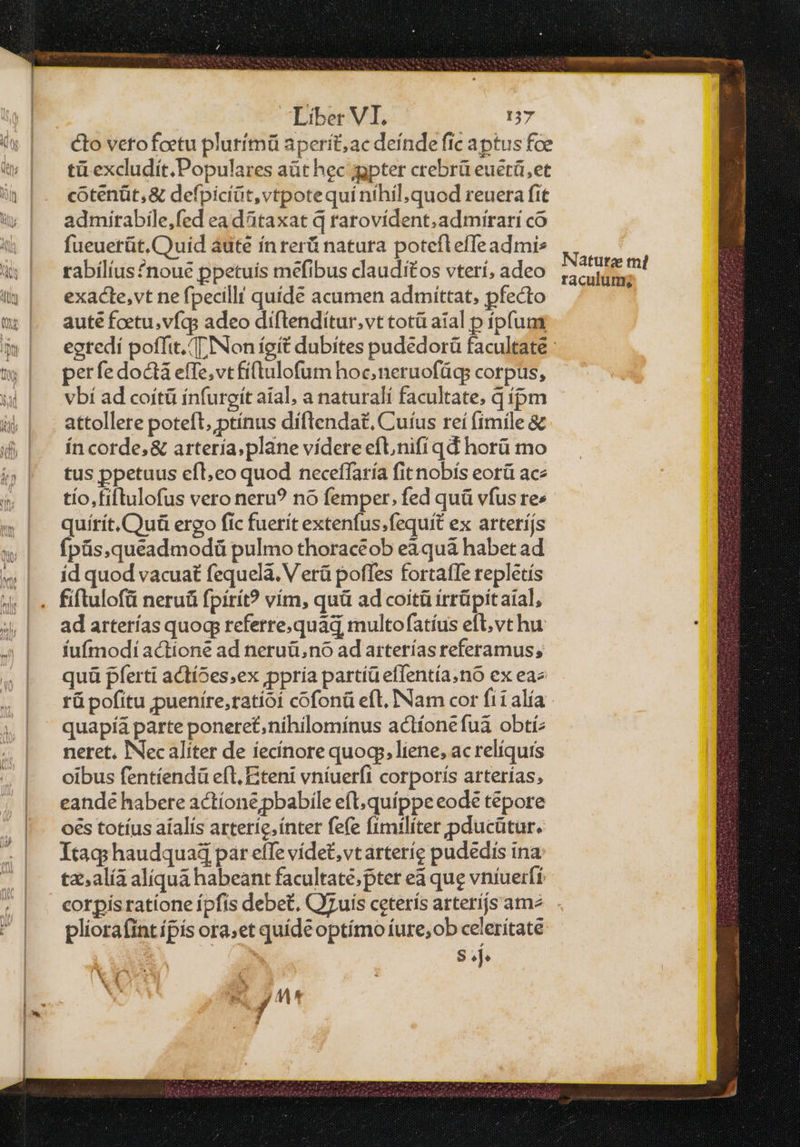 Liber VI. 137
cto vero fœtu plurimũ aperit̃, ac deinde sic aptus fœ
tũ excludit. Populares aũt hęc ꝓpter crebrũ euẽtũ, et
cõtẽnũt, & despiciũt, vtpote qui nihil, quod reuera sit
admirabile, sed ea dũtaxat q̃ raro vident, admirari cõ
sueuerũt. Quid aũtẽ in rerũ natura potest esse admi⸗
rabilius? nouẽ ꝑpetuis mẽsibus claudit̃os vteri, adeo
exacte, vt ne specilli quidẽ acumen admittat, ꝓfecto
autẽ fœtu, vsq; adeo distenditur, vt totũ aĩal p ipsum
egredi possit. ¶ Non igit̃ dubites pudẽdorũ facultatẽ
per se doctã esse, vt fistulosum hoc, neruosũq; corpus,
vbi ad coitũ insurgit aĩal, a naturali facultate, q̃ ip̃m
attollere potest, ꝓtinus distendat̃. Cuius rei simile &
in corde, & arteria, plane videre est, nisi qđ horũ mo
tus ꝑpetuus est, eo quod necessaria sit nobis eorũ ac⸗
tio, fistulosus vero neruꝰ nõ semper, sed quũ vsus re⸗
quirit. Quũ ergo sic fuerit extensus, sequit̃ ex arterijs
sp̃ũs, quẽadmodũ pulmo thoracẽ ob eã quã habet ad
id quod vacuat̃ sequelã. Verũ posses fortasse repletis
fistulosũ neruũ spiritꝰ vim, quũ ad coitũ irrũpit aĩal,
ad arterias quoq; referre, quãq̃ multo satius est, vt hu
iusmodi actionẽ ad neruũ, nõ ad arterias referamus,
quũ p̃serti actiões, ex ꝓpria partiũ essentia, nõ ex ea⸗
rũ positu ꝓuenire, ratiõi cõsonũ est. Nam cor si i alia
quapiã parte poneret̃, nihilominus actionẽ suã obti⸗
neret. Nec aliter de iecinore quoq;, liene, ac reliquis
oĩbus sentiendũ est. Etenĩ vniuersi corporis arterias,
eandẽ habere actionẽ ꝓbabile est, quippe eodẽ tẽpore
oẽs totius aĩalis arterię, inter sese similiter ꝓducũtur.
Itaq; haudquaq̃ par esse videt̃, vt arterię pudẽdis ina
tæ, aliã aliquã habeant facultatẽ, p̃ter eã quę vniuersi
corp̃is ratione ipsis debet̃. Q; uis ceteris arterijs am⸗
pliora sint ip̃is ora, et quidẽ optimo iure, ob celeritatẽ
S .j.
Naturæ mi
raculum;